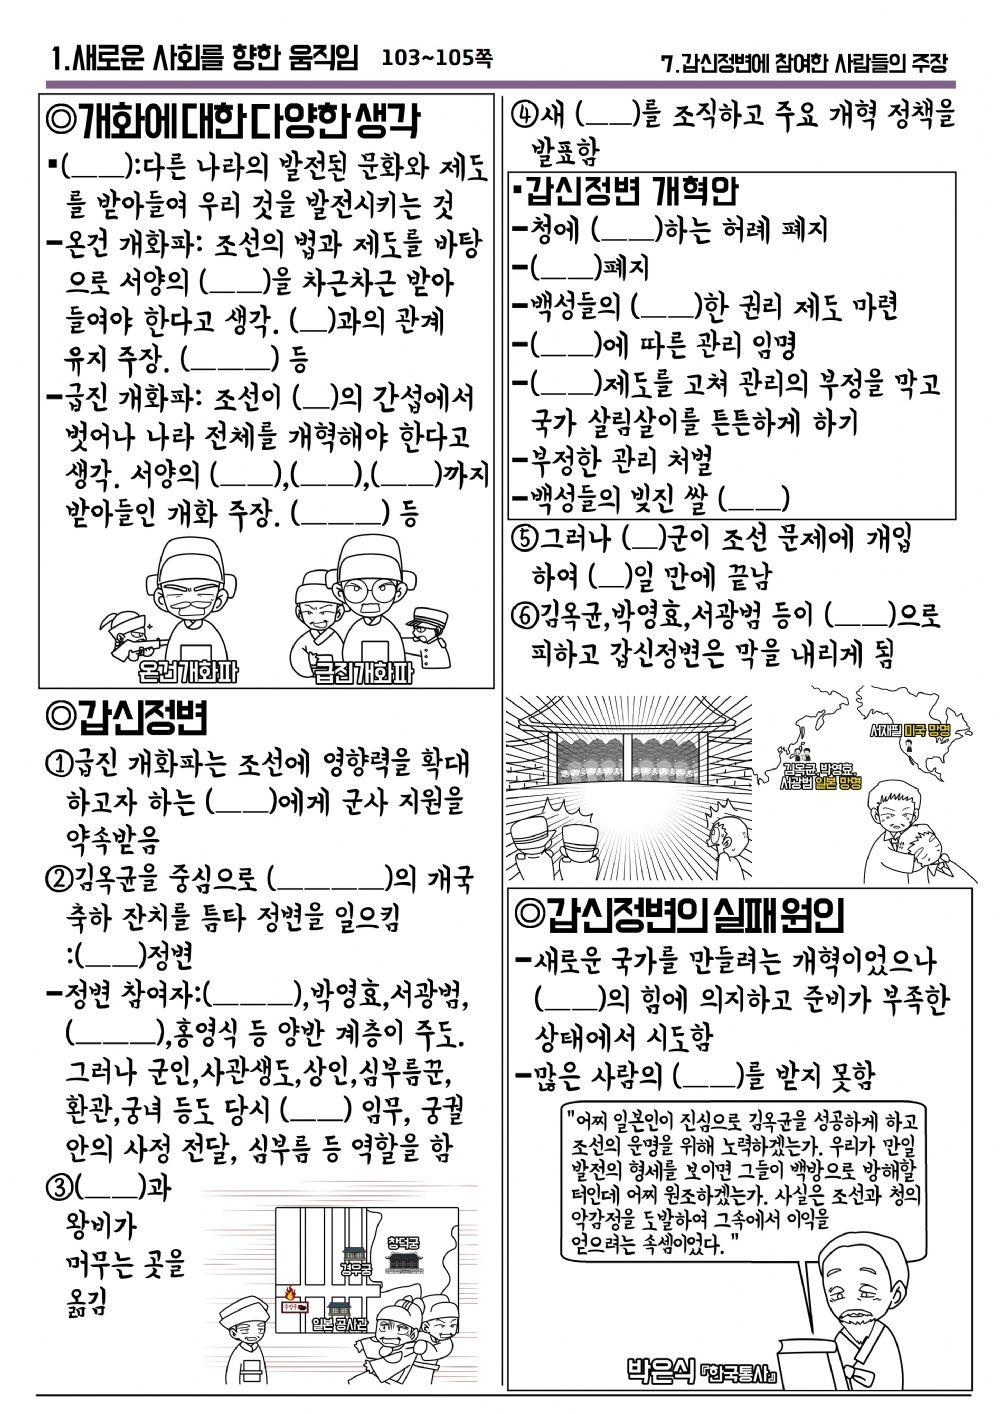 1.새로운 사회를 향한 움직임 103~105쪽
7.갑신정변에 참여한 사람들의 주장
◎개화에 대한 다양한 생각
▪(____):다른 나라의 발전된 문화와 제도
를 받아들여 우리 것을 발전시키는 것
-온건 개화파: 조선의 법과 제도를 바탕
으로 서양의 (____)을 차근차근 받아
들여야 한다고 생각. (__)과의 관계
유지 주장. (______) 등
-급진 개화파: 조선이 (__)의 간섭에서
벗어나 나라 전체를 개혁해야 한다고
생각. 서양의 (____),(____),(____)까지
받아들인 개화 주장. (______) 등
온건개화파
급진개화파
◎갑신정변
①급진 개화파는 조선에 영향력을 확대
하고자 하는 (____)에게 군사 지원을
약속받음
②김옥균을 중심으로 (________)의 개국
축하 잔치를 틈타 정변을 일으킴
:(____)정변
-정변 참여자:(______),박영효,서광범,
(______),홍영식 등 양반 계층이 주도.
그러나 군인,사관생도,상인,심부름꾼,
환관,궁녀 등도 당시 (____) 임무, 궁궐
안의 사정 전달, 심부름 등 역할을 함
③(____)과
왕비가
머무는 곳을
옮김
창덕궁
경우궁
우정국
일본 공사관
④새 (____)를 조직하고 주요 개혁 정책을
발표함
▪갑신정변 개혁안
-청에 (____)하는 허례 폐지
-(____)폐지
-백성들의 (____)한 권리 제도 마련
-(____)에 따른 관리 임명
-(____)제도를 고쳐 관리의 부정을 막고
국가 살림살이를 튼튼하게 하기
-부정한 관리 처벌
-백성들의 빚진 쌀 (____)
⑤그러나 (__)군이 조선 문제에 개입
하여 (__)일 만에 끝남
⑥김옥균,박영효,서광범 등이 (____)으로
피하고 갑신정변은 막을 내리게 됨
서재필 미국 망명
김옥균, 박영효,
서광범 일본 망명
◎갑신정변의 실패 원인
-새로운 국가를 만들려는 개혁이었으나
(____)의 힘에 의지하고 준비가 부족한
상태에서 시도함
-많은 사람의 (____)를 받지 못함
"어찌 일본인이 진심으로 김옥균을 성공하게 하고
조선의 운명을 위해 노력하겠는가. 우리가 만일
발전의 형세를 보이면 그들이 백방으로 방해할
터인데 어찌 원조하겠는가. 사실은 조선과 청의
악감정을 도발하여 그속에서 이익을
얻으려는 속셈이었다. "
박은식 『한국통사』